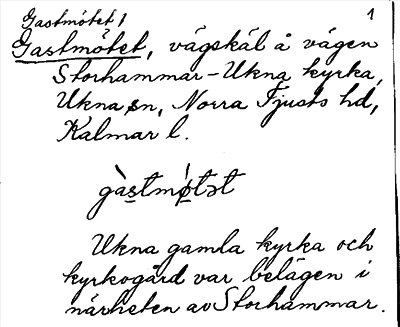 Gastmötet 1
1
Gastmötet, vägskäl å vägen
Storhammar-Ukna kyrka,
Ukna sn, Norra Tjusts hd,
Kalmar l.
gàstmø̀tət
Ukna gamla kyrka och
kyrkogård var belägen i
närheten av Storhammar.